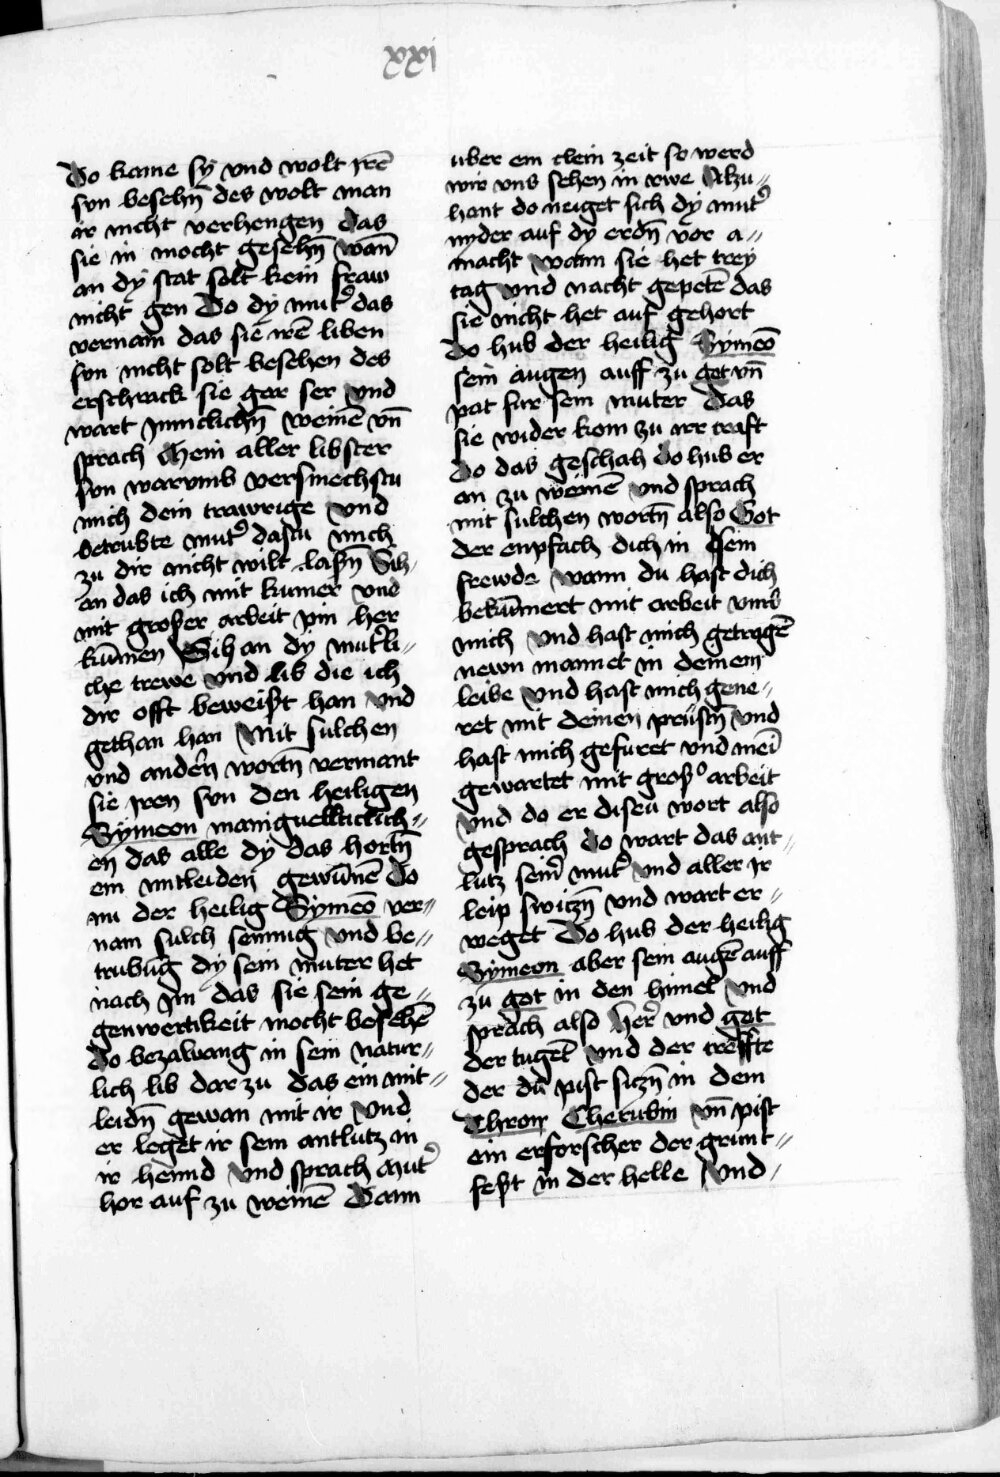 xxi
Do kame sy vnd wolt irē
sun besehn̄ des wolt man
ir nicht verhengen das
sie in mocht gesehn̄ wan̄
an dy stat solt kein fraw
nicht gen Do dy mut' das
vernam das sie irē liben
sun nicht solt besehen des
erschrack sie gar ser vnd
wart inniclichn̄ weinē vn̄
sprach Mein aller libster
sun warumb versmechstu
mich dein trawrige vnd
betrubte mut' dastu mich
zu dir nicht wilt laßn̄ Sih
an das ich mit kumer vnd
mit groſer arbeit pin her
kūmen Sih an dy mut'li//
che trewe vnd lib die ich
dir offt beweiſt han vnd
gethan han Mit sulchen
vnd andern wortn̄ vermant
sie iren sun den heiligen
Symeon maniguelticlich//
en das alle dy das hortn̄
ein mitleiden gewūnē Do
nu der heilig Symeō ver//
nam sulch senung vnd be//
trubūg dy sein muter het
nach im das sie sein ge//
genwertikeit mocht besehē
do bezwang in sein natur//
lich lib dar zu das ein mit//
leidn̄ gewan mit ir Vnd
er leget ir sein antlutz in
ir hennd Vnd sprach Mut'
hor auf zu weinē Dann
uber ein clein zeit so werd
wir vns sehen in rwe Alzu//
hant do neiget sich dy mut'
nyder auf dy erdn̄ vor a//
macht wann sie het trey
tag vnd nacht gepetē das
sie nicht het auf gehort
Do hub der heilig Symeō
sein augen auff zu got vn̄
pat fur sein muter Das
sie wider kom zu irr craft
Do das geschah do hub er
an zu weinē vnd sprach
mit sulchen wortn̄ also Got
der enpfach dich in sein
frewde wann du hast dich
bekūmert mit arbeit vmb
mich Vnd hast mich getragē
newn manet in deinem
leibe Vnd hast mich gene//
ret mit deinen prüstn̄ Vnd
hast mich gefuret vnd mei
gewartet mit groſ' arbeit
Vnd do er diseu wort also
gesprach do wart das ant//
lutz sein' mut' Vnd aller ir
leip switzn̄ vnd wart er//
weget Do hub der heilig
Symeon aber sein augē auff
zu got in den himel Vnd
sprach also Her' vnd got
der tugēt Vnd der creffte
der du pist sitzn̄ in dem
Thron Cherubin vn̄ pist
ein erforscher der grunt//
feſt in der helle Vnd